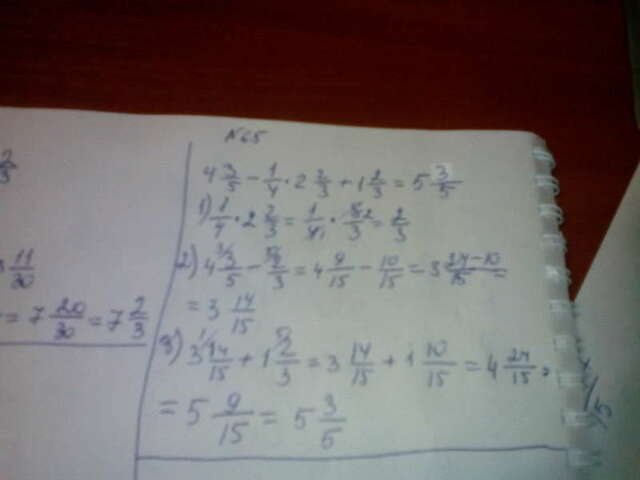 2/3
11/30
= 7 20/30 = 7 2/3
№65
4 3/5 - 1/4 · 2 2/3 + 1 2/3 = 5 3/5
1) 1/4 · 2 2/3 = 1/4 1 · 8 2/3 = 2/3
2) 4 3/5 - 2/3 = 4 9/15 - 10/15 = 3 24-10/15 =
= 3 14/15
3) 3 14/15 + 1 2/3 = 3 14/15 + 1 10/15 = 4 24/15 =
= 5 9/15 = 5 3/5